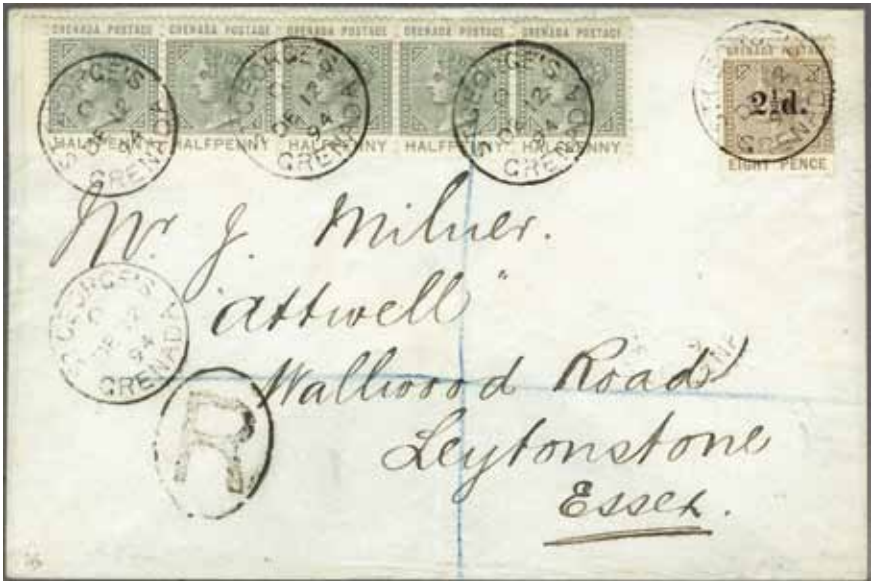 GRENADA POSTAGE GRENADA POSTAGE GRENADA POSTAGE GRENADA POSTAGE GRENADA POSTAGE
HALFPENNY HALFPENNY HALFPENNY HALFPENNY HALFPENNY
ST GEORGE'S
C
DE 12
94
GRENADA
ST GEORGE'S
C
DE 12
94
GRENADA
ST GEORGE'S
C
DE 12
94
GRENADA
GRENADA POSTAGE
2½d.
EIGHT PENCE
GRENADA
Mr. J. Milner.
"Attwell"
Wallwood Road
Leytonstone
Essex.
ST GEORGE'S
C
DE 12
94
GRENADA
R